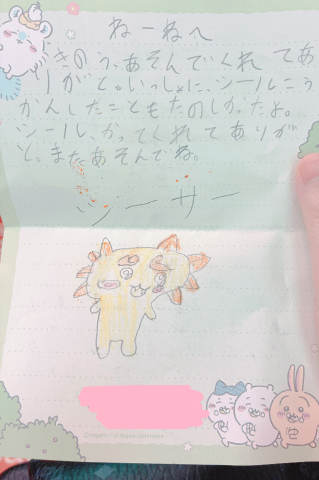 ねーねへ
きのう、あそんでくれてあ
りがと。いっしょに、シールこう
かんしたこともたのしかったよ。
シール、かってくれてありが
と、またあそんでね。
シーサー